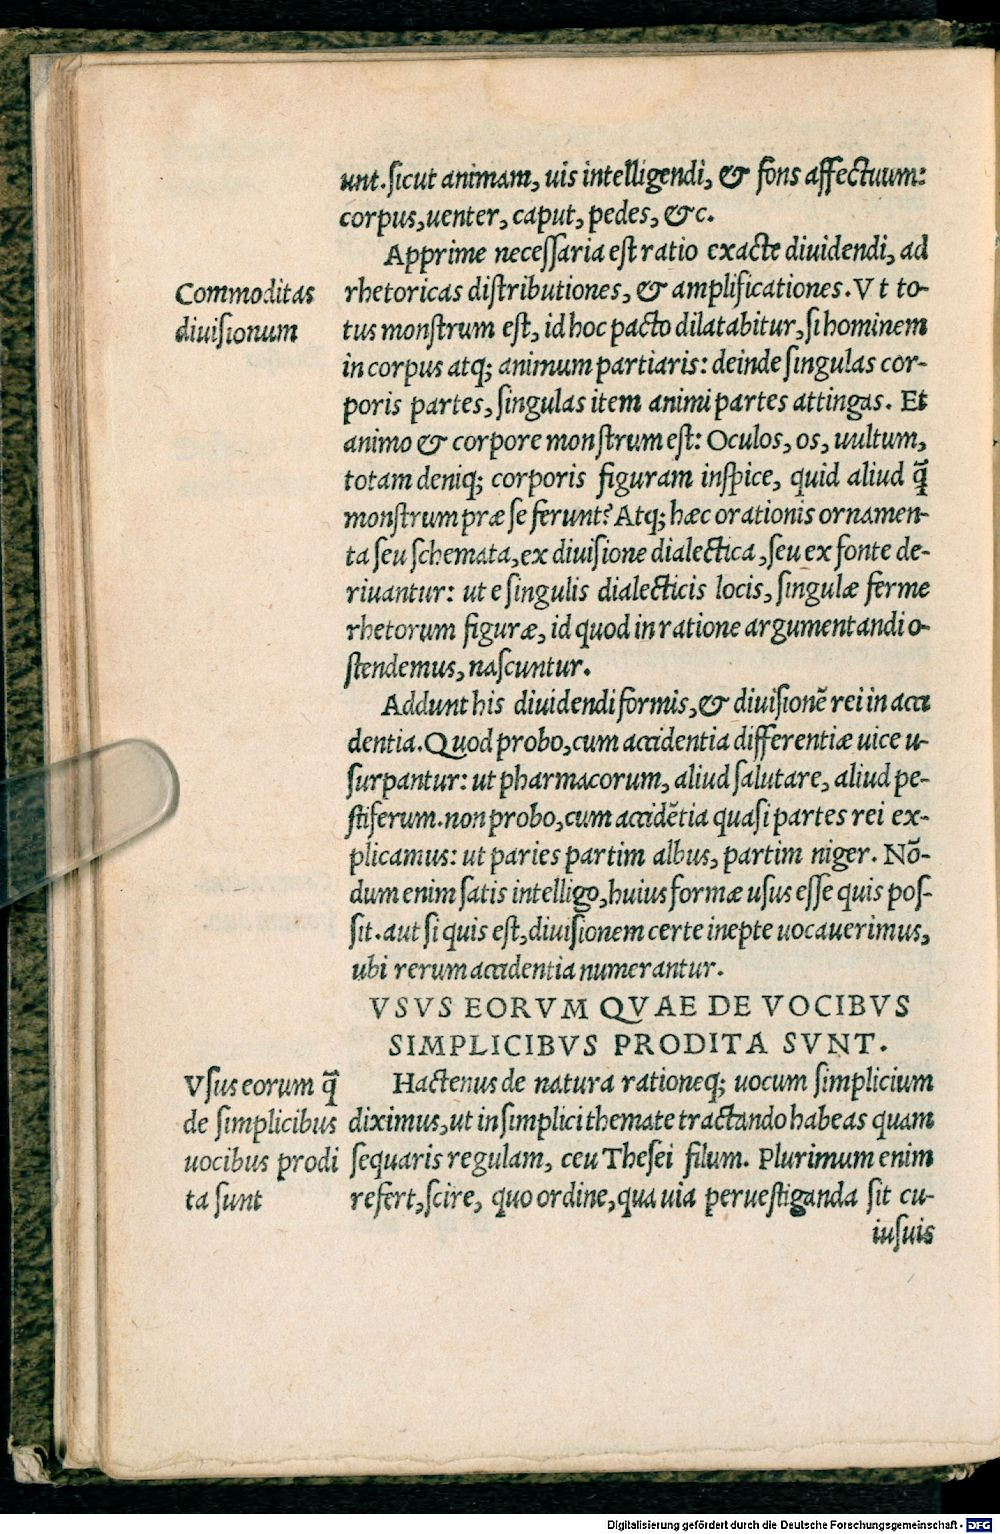 unt. sicut animam, uis intelligendi, & fons affectuum:
corpus, uenter, caput, pedes, &c.
Apprime necessaria est ratio exacte diuidendi, ad
Commoditas
diuisionum
rhetoricas distributiones, & amplificationes. Vt to-
tus monstrum est, id hoc pacto dilatabitur, si hominem
in corpus atq; animum partiaris: deinde singulas cor-
poris partes, singulas item animi partes attingas. Et
animo & corpore monstrum est: Oculos, os, uultum,
totam deniq; corporis figuram inspice, quid aliud q̃
monstrum præ se ferunt? Atq; hæc orationis ornamen-
ta seu schemata, ex diuisione dialectica, seu ex fonte de-
riuantur: ut e singulis dialecticis locis, singulæ ferme
rhetorum figuræ, id quod in ratione argumentandi o-
stendemus, nascuntur.
Addunt his diuidendi formis, & diuisionẽ rei in acci
dentia. Quod probo, cum accidentia differentiæ uice u-
surpantur: ut pharmacorum, aliud salutare, aliud pe-
stiferum. non probo, cum accidẽtia quasi partes rei ex-
plicamus: ut paries partim albus, partim niger. Nõ-
dum enim satis intelligo, huius formæ usus esse quis pos-
sit. aut si quis est, diuisionem certe inepte uocauerimus,
ubi rerum accidentia numerantur.
VSVS EORVM QVAE DE VOCIBVS
SIMPLICIBVS PRODITA SVNT.
Vsus eorum q̃
de simplicibus
uocibus prodi
ta sunt
Hactenus de natura rationeq; uocum simplicium
diximus, ut in simplici themate tractando habeas quam
sequaris regulam, ceu Thesei filum. Plurimum enim
refert, scire, quo ordine, qua uia peruestiganda sit cu-
iusuis
Digitalisierung gefördert durch die Deutsche Forschungsgemeinschaft - DFG